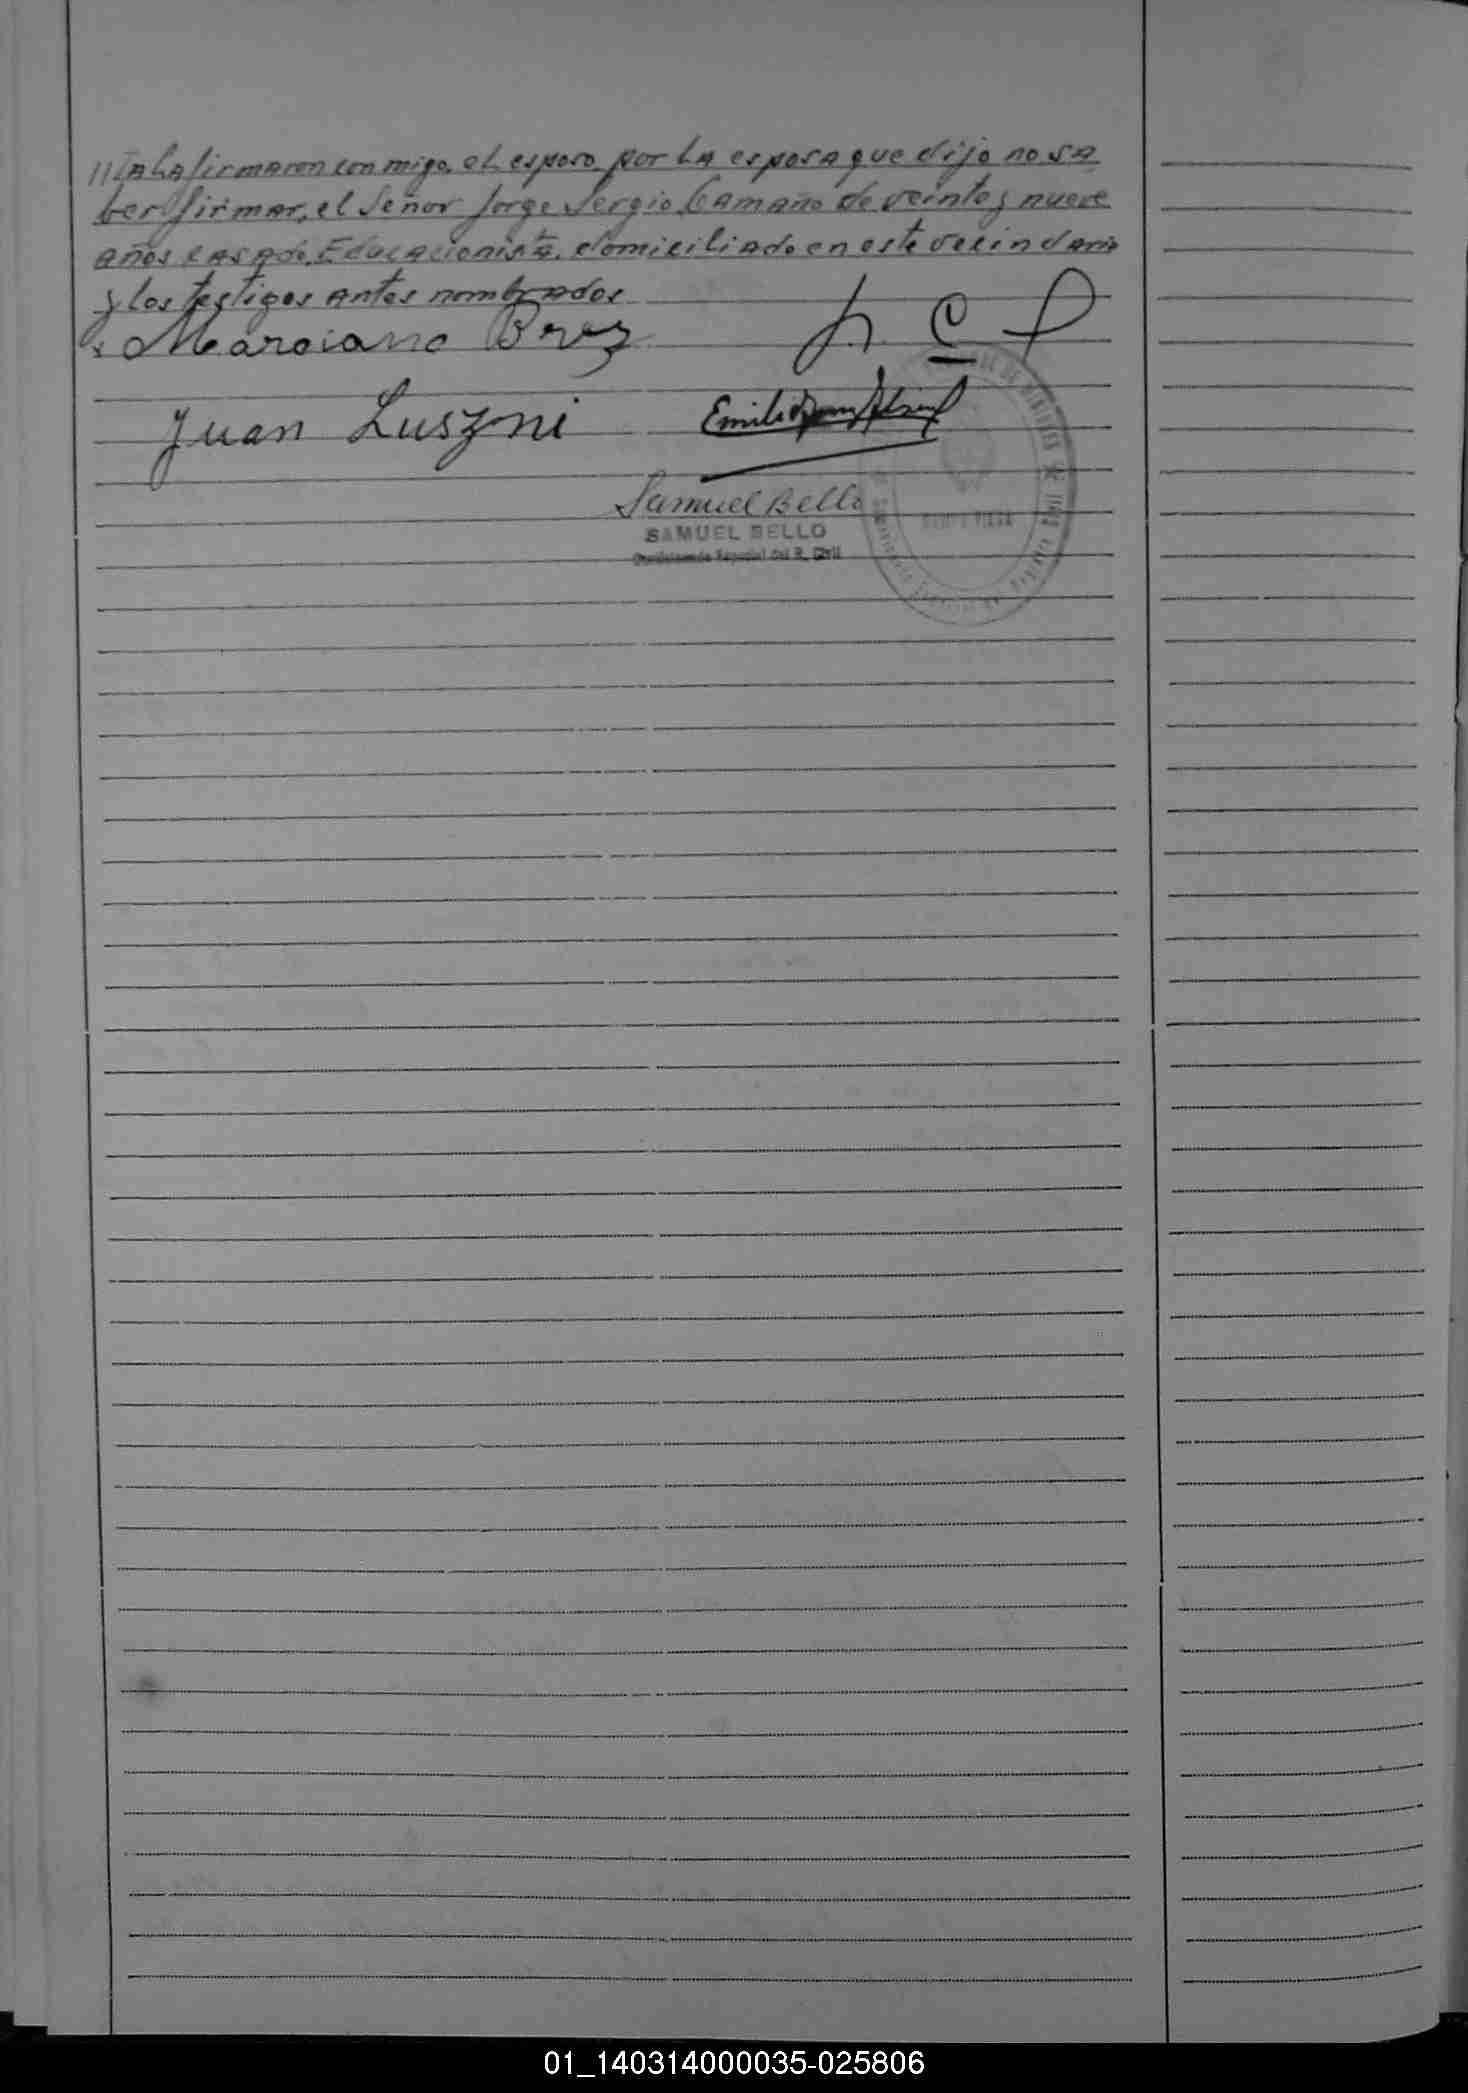 //taLafirmaron conmigo, el esposo por LA esposa que dijo no sa
ber firmar, el Señor Jorge Sergio Camaño de veinte y nueve
años casado, Educacionista, domiciliado en este vecindario
y los testigos antes nombrados
Marciano
Juan Luszni
Emilio
Samuel Bello
SAMUEL BELLO
Especial del R. Civil
01_140314000035-025806